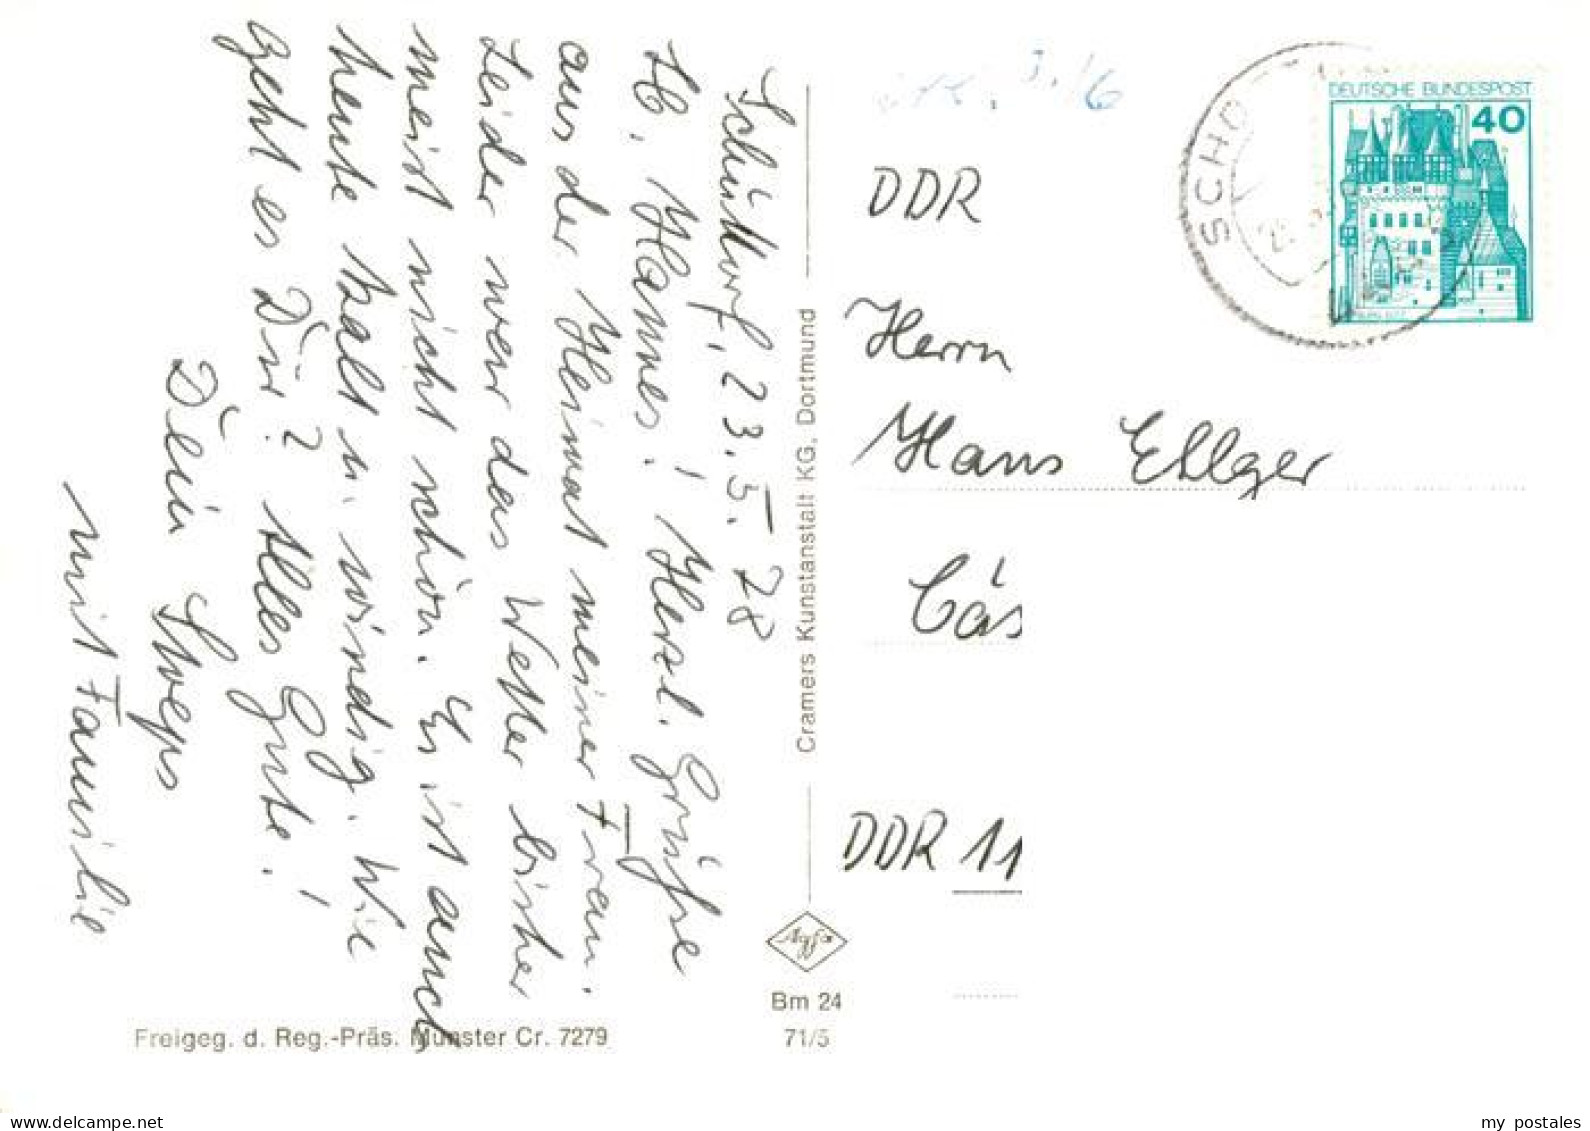 Schüttorf, 23.5.78
Lb. Hannes! Herzl. Grüße
aus der Heimat meiner Frau.
Leider war das Wetter bisher
meist nicht schön. Es ist auch
heute kalt u. windig. Wie
geht es Dir? Alles Gute!
Dein
mit Familie
Cramers Kunstanstalt KG, Dortmund
Bm 24
71/5
Freigeg. d. Reg.-Präs. Münster Cr. 7279
DDR
Herrn
Hans Ellger
DDR 11
DEUTSCHE BUNDESPOST
40
SCHÜ
my postales